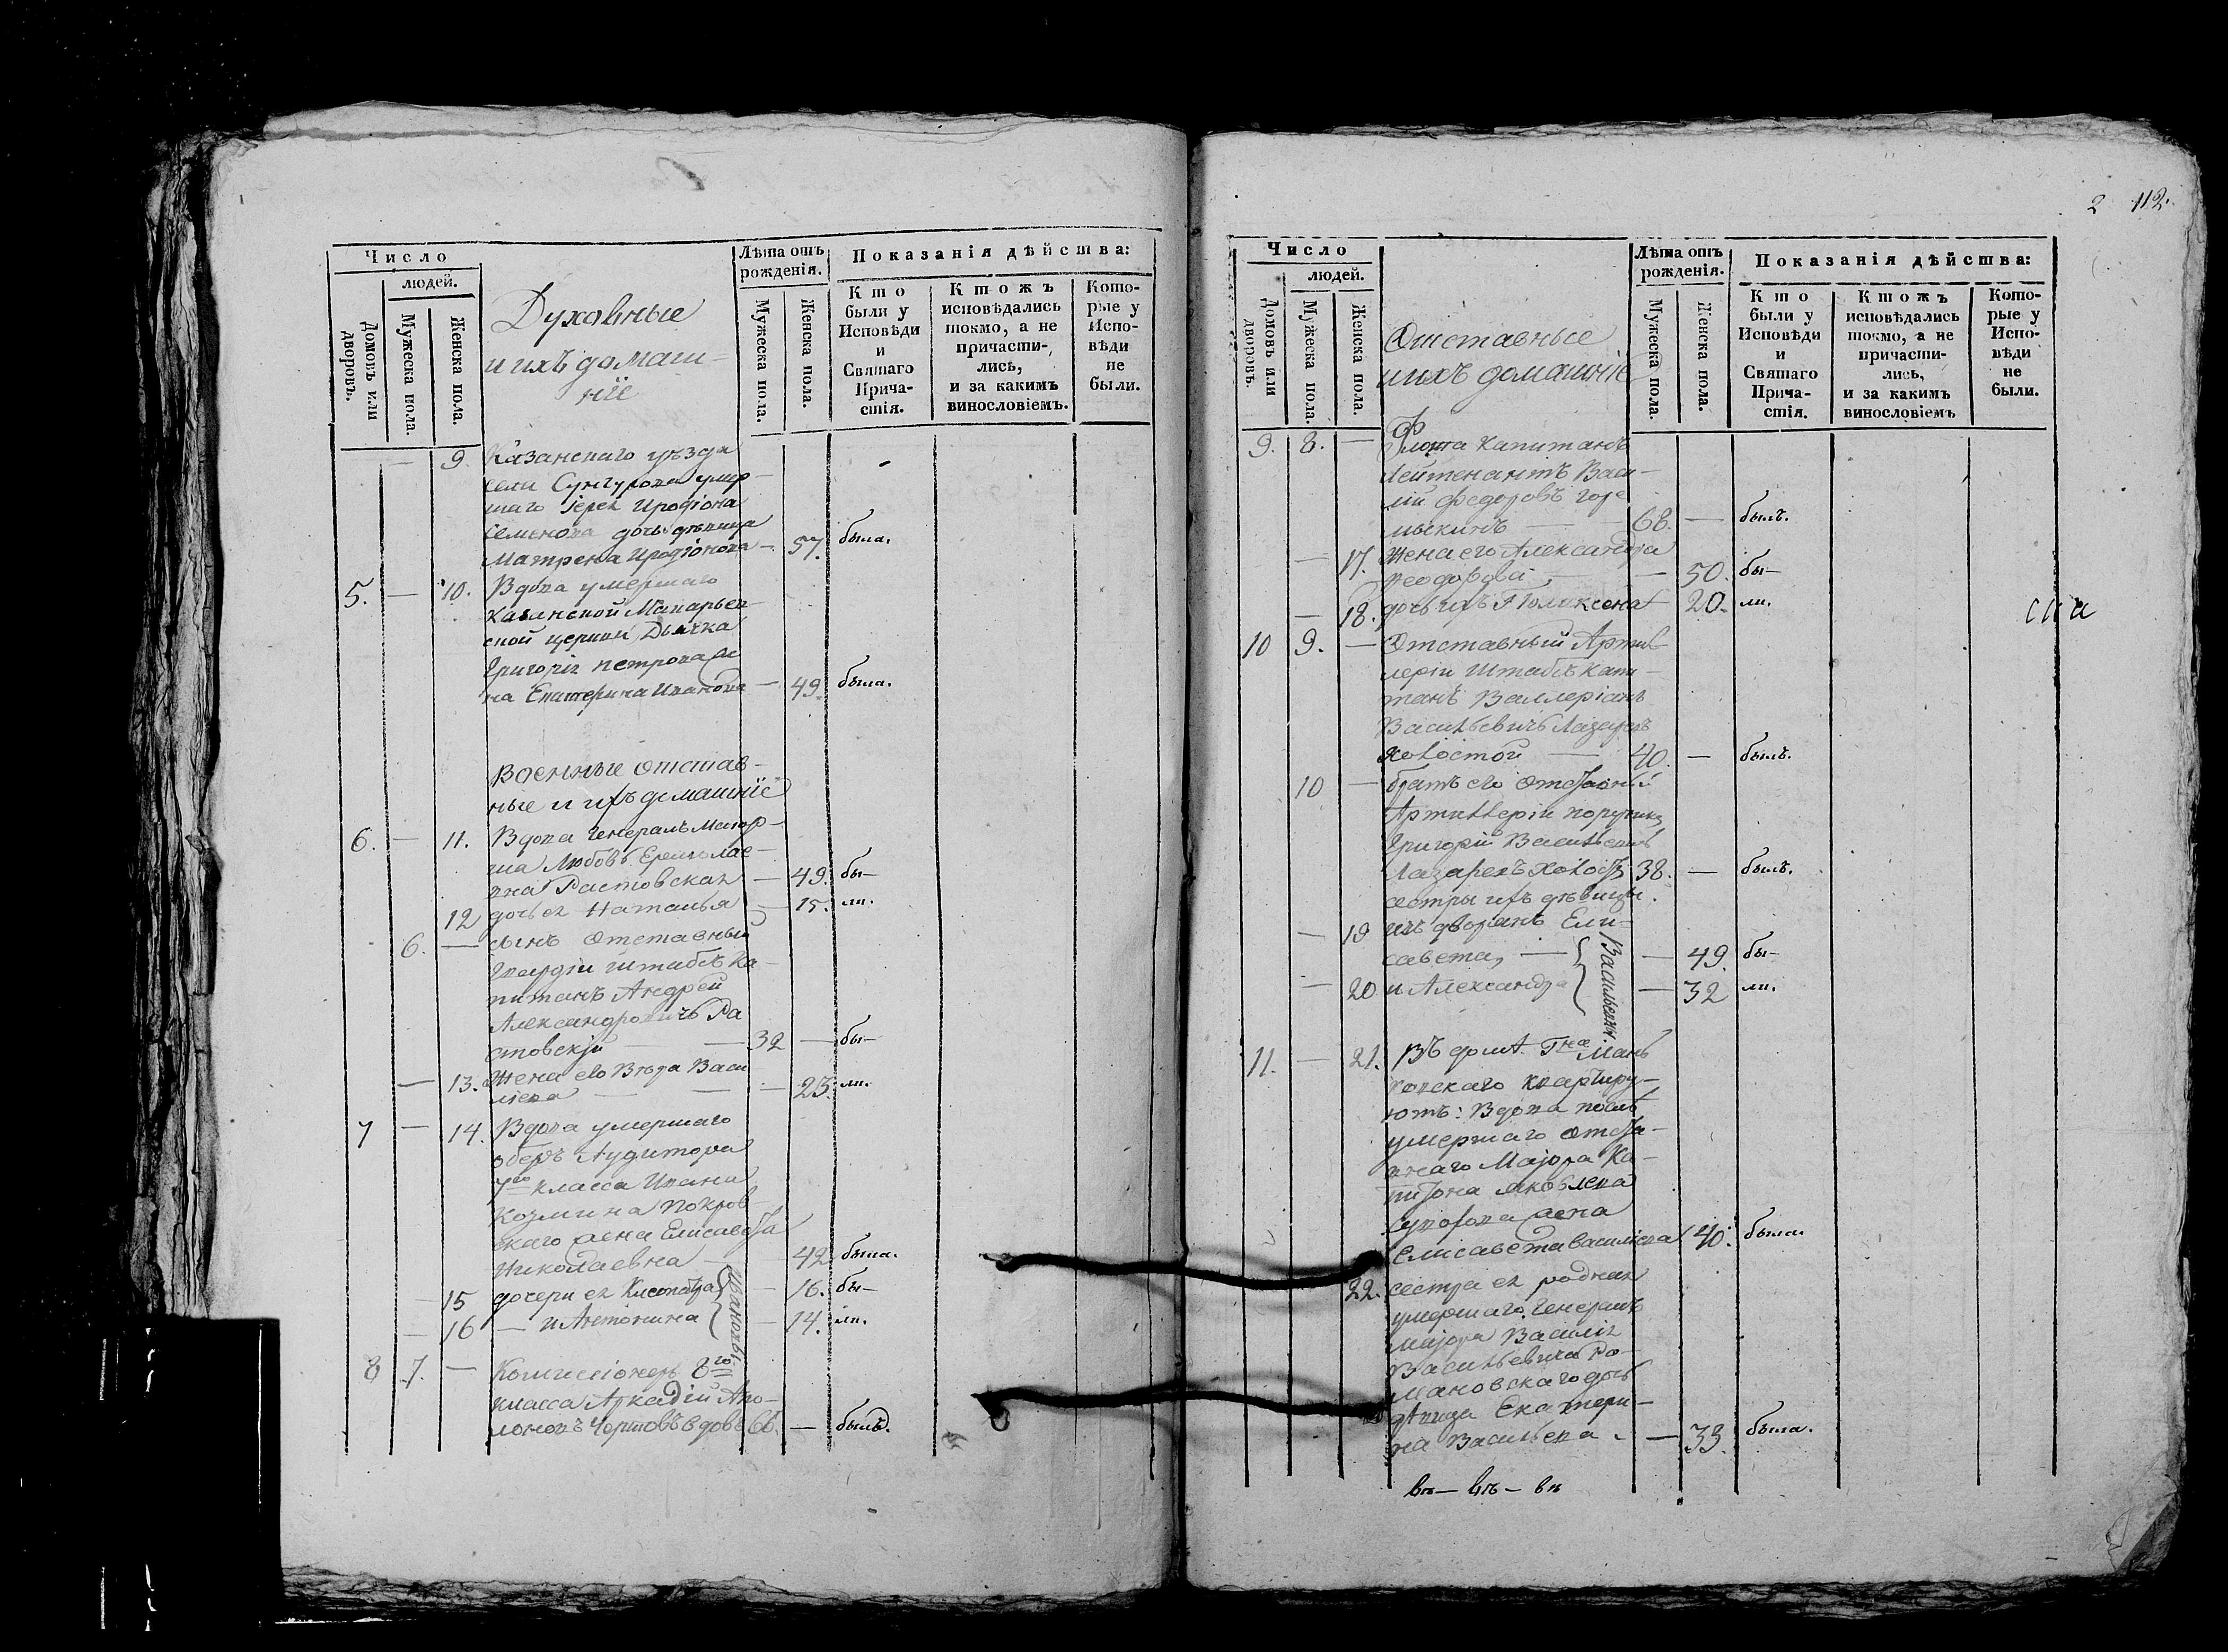 Число
людей.
Домовъ или дворовъ.
Мужеска пола.
Женска пола.
Духовные
и ихъ домаш-
ніе
Лѣта отъ
рожденія.
Мужеска пола.
Женска пола.
Показанія дѣйства:
Кто
были у
Исповѣди
и
Святаго
Прича-
стія.
Ктожъ
исповѣдались
токмо, а не
причасти-
лись,
и за какимъ
винословіемъ.
Кото-
рые у
Испо-
вѣди
не
были.
— 9. Казанскаго уѣзда
села Сунгурова умер-
шаго Іерея Иродіона
Семенова дочь дѣвица
Матрена Иродіонова — 57. была.
5. — 10. Вдова умершаго
Казанской Макарьев-
ской церкви Дьячка
Григорія Петрова же
на Екатерина Иванова — 49. была.
Военные отстав-
ные и ихъ домашніе
6. — 11. Вдова Генералъ Маіор-
ша Любовь Ермолае-
вна Растовская — 49. бы-
12 дочь ея Наталья — 15. ли.
6. — сынъ отставный
Гвардіи Штабсъ Ка-
питанъ Андрей
Александровичъ Ра
стовскій — 32 — бы-
— 13. Жена его Вѣра Васи
льева — 23. ли.
7 — 14. Вдова умершаго
оберъ Аудитора
7го класса Ивана
Козмина Покров
скаго жена Елисавета
Николаевна — 42 была.
— 15 дочери ея Клеопатра — 16. бы-
— 16 — и Антонина — 14. ли.
Ивановы
8 7. — Коммисіонеръ 8го
класса Аркадій Апо-
лоновъ Чертовъ вдовъ 66. — былъ.
2 112.
Число
людей.
Домовъ или дворовъ.
Мужеска пола.
Женска пола.
Отставные
и ихъ домашніе
Лѣта отъ
рожденія.
Мужеска пола.
Женска пола.
Показанія дѣйства:
Кто
были у
Исповѣди
и
Святаго
Прича-
стія.
Ктожъ
исповѣдались
токмо, а не
причасти-
лись,
и за какимъ
винословіемъ
Кото-
рые у
Испо-
вѣди
не
были.
9. 8. — Флота Капитанъ
Лейтенантъ Васи-
лій Федоровъ Горе
мыкинъ — 68. — былъ.
— 17. Жена его Александра
Феодорова — 50. бы-
— 18. дочь ихъ Поликсена 20. ли.
10 9. — Отставный Артил
леріи Штабсъ Капи-
танъ Валлеріанъ
Васильевичъ Лазаревъ
холостой — 40. — былъ.
10 — братъ его отставный
Артиллеріи порутчикъ
Григорій Васильевичъ
Лазаревъ холостъ 38. — былъ.
сестры ихъ дѣвицы
— 19 изъ дворянъ Ели-
савета, — 49. бы-
— 20 и Александра — 32 ли.
Васильевны
11. — 21. Въ домѣ Гна Ман
совскаго квартиру-
ютъ: Вдова послѣ
умершаго отста-
внаго Маіора Ка-
питона Яковлева
жена
Елисавета Васильева 40. была.
22. сестра ея родная
умершаго Генералъ
маіора Василія
Васильевича Ро-
мановскаго дочь
дѣвица Екатери-
на Васильева — 33. была.